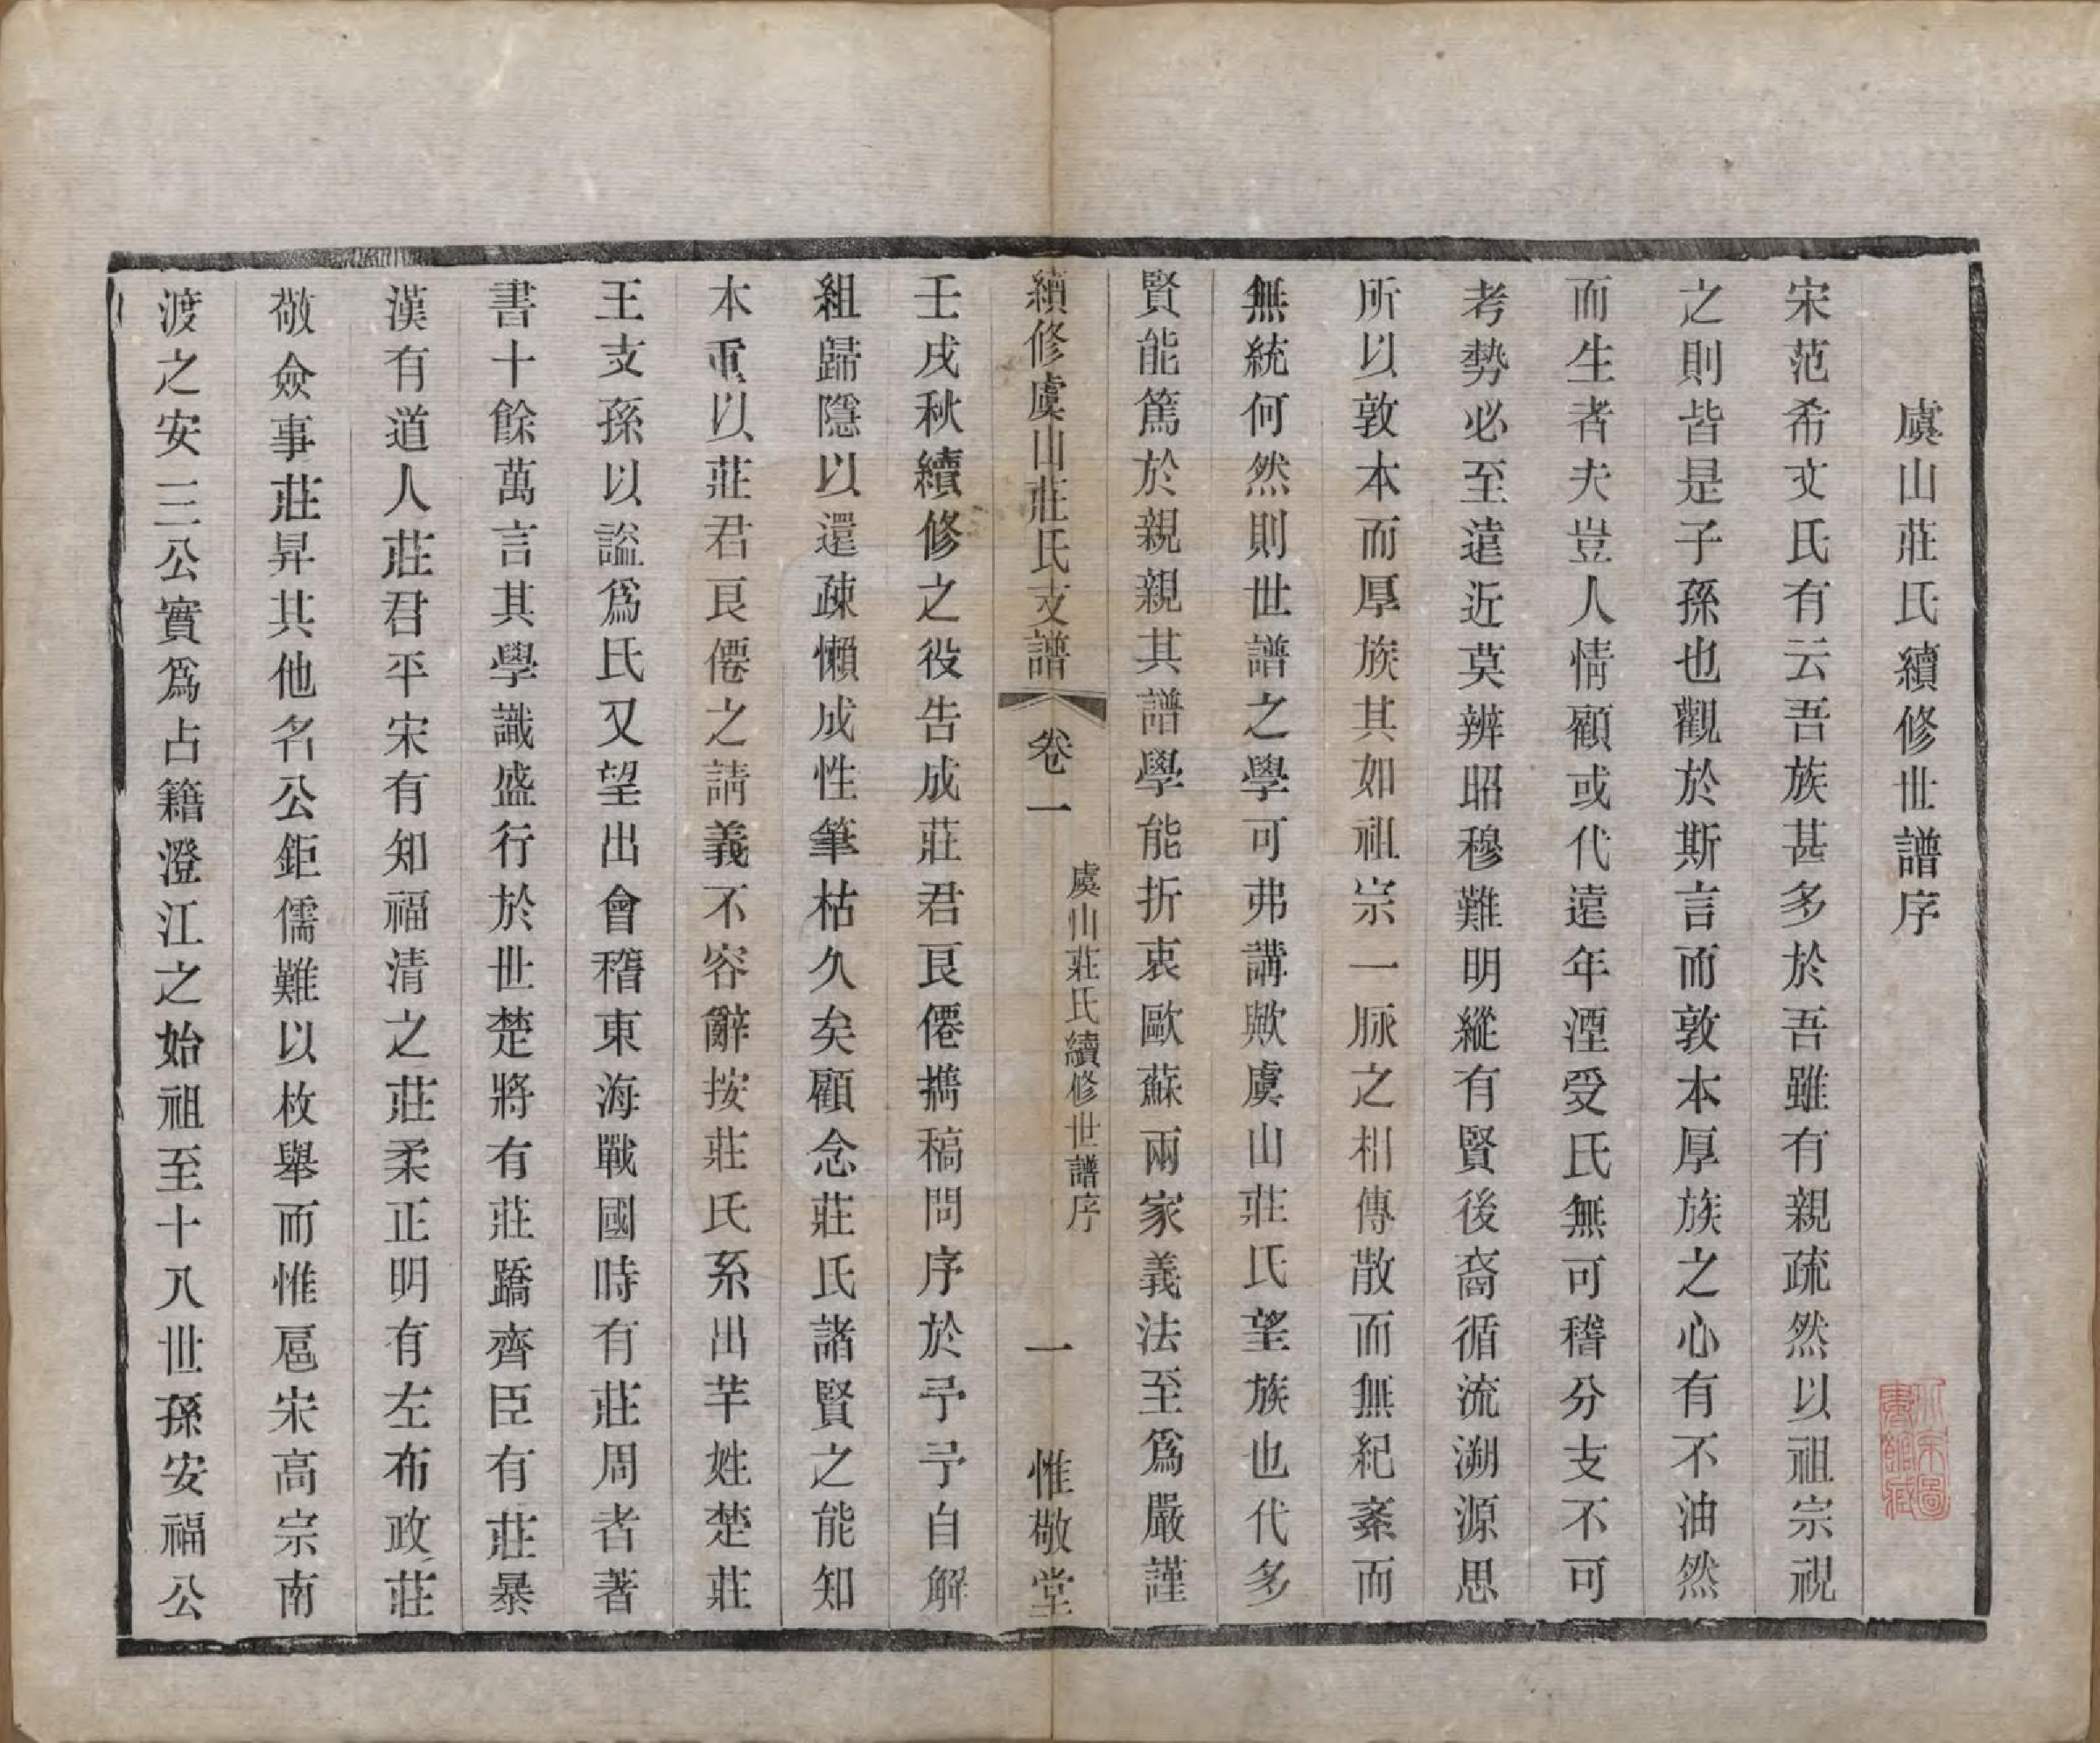 虞山莊氏續修世譜序
宋范希文氏有云吾族甚多於吾雖有親疏然以祖宗視
之則皆是子孫也觀於斯言而敦本厚族之心有不油然
而生者夫豈人情顧或代遠年湮受氏無可稽分支不可
考勢必至遠近莫辨昭穆難明縱有賢後裔循流溯源思
所以敦本而厚族其如祖宗一脈之相傳散而無紀紊而
無統何然則世譜之學可弗講歟虞山莊氏望族也代多
賢能篤於親親其譜學能折衷歐蘇兩家義法至爲嚴謹
續修虞山莊氏支譜
卷一
虞山莊氏續修世譜序
一
惟敬堂
壬戌秋續修之役告成莊君艮僊攜稿問序於予予自解
組歸隱以還疎懶成性筆枯久矣顧念莊氏諸賢之能知
本重以莊君艮僊之請義不容辭按莊氏系出芊姓楚莊
王支孫以謚爲氏又望出會稽東海戰國時有莊周者著
書十餘萬言其學識盛行於世楚將有莊蹻齊臣有莊暴
漢有道人莊君平宋有知福清之莊柔正明有左布政莊
敬僉事莊昇其他名公鉅儒難以枚舉而惟扈宋高宗南
渡之安三公實爲占籍澄江之始祖至十八世孫安福公
北京圖
書館藏